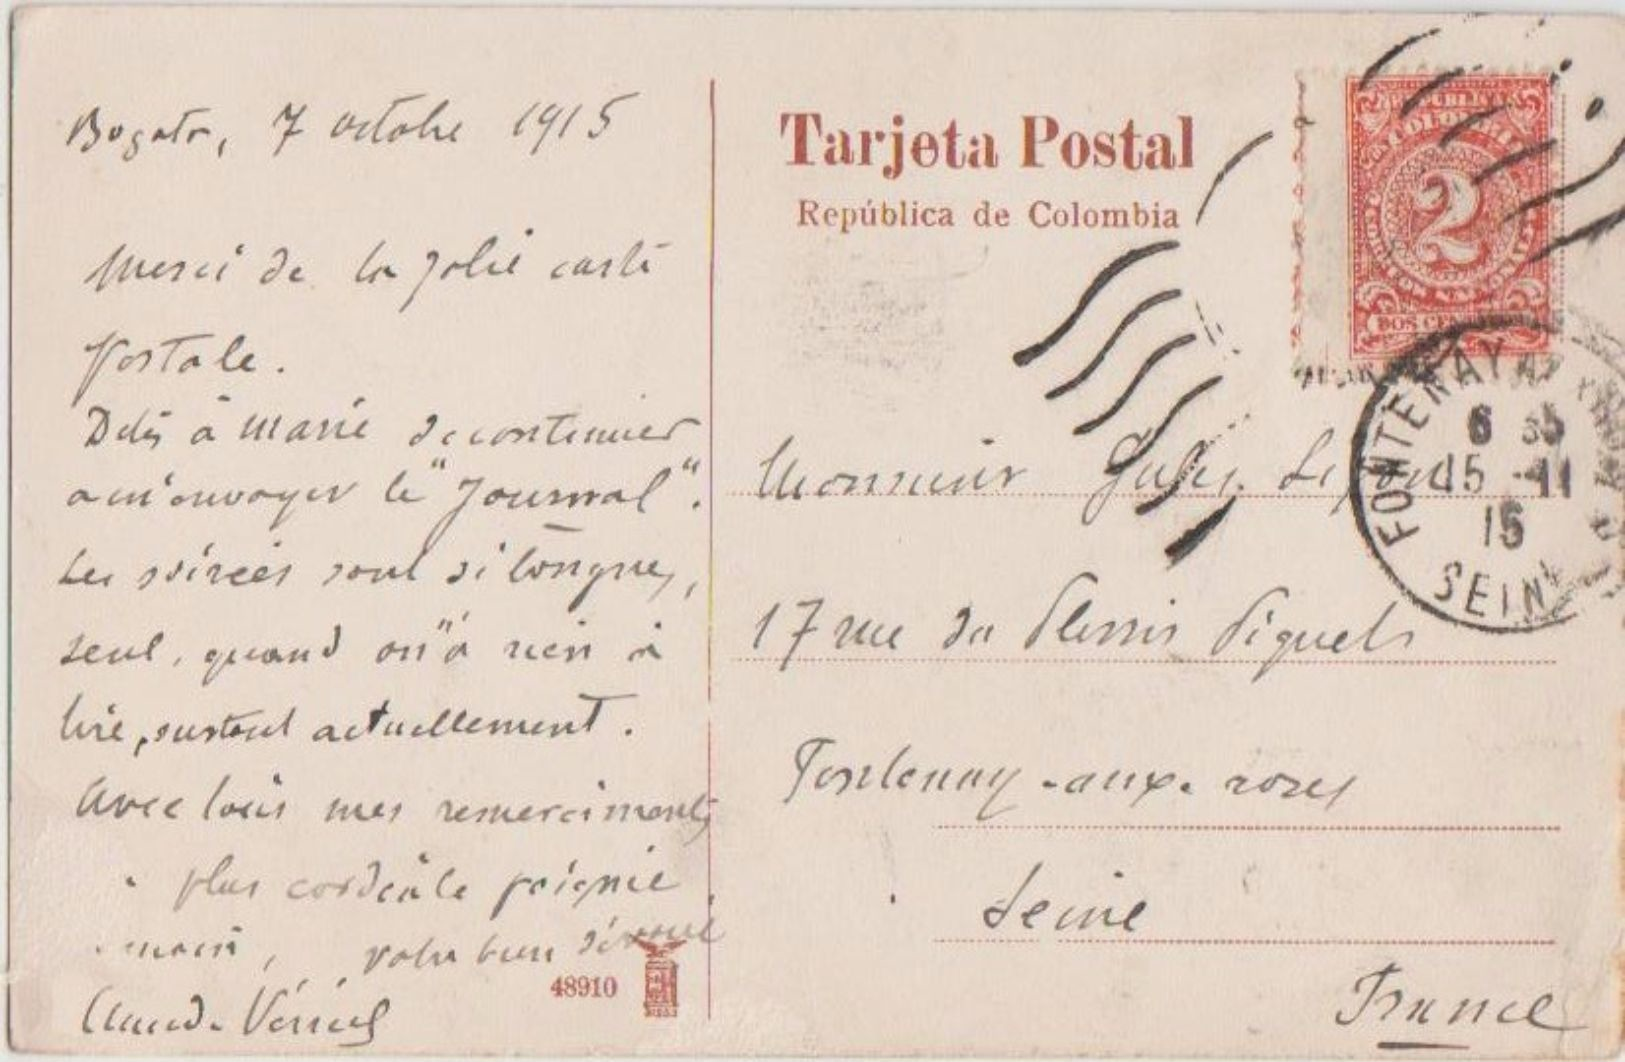 Bogota, 7 octobre 1915
Merci de la jolie carte
postale.
Dites à Marie de continuer
a m'envoyer le "Journal".
Les soirées sont si longues,
seul, quand on a rien à
lire, surtout actuellement.
Avec tous mes remerciments
plus cordiale poignée
main, votre bien dévoué
Claude
48910
Tarjeta Postal
República de Colombia
REPUBLICA
COLOMBIA
2
DOS CEN
FONTENAY
6 35
15 -11
15
SEINE
Monsieur Jules
17 rue du Plessis Piquet
Fontenay-aux-roses
Seine
France